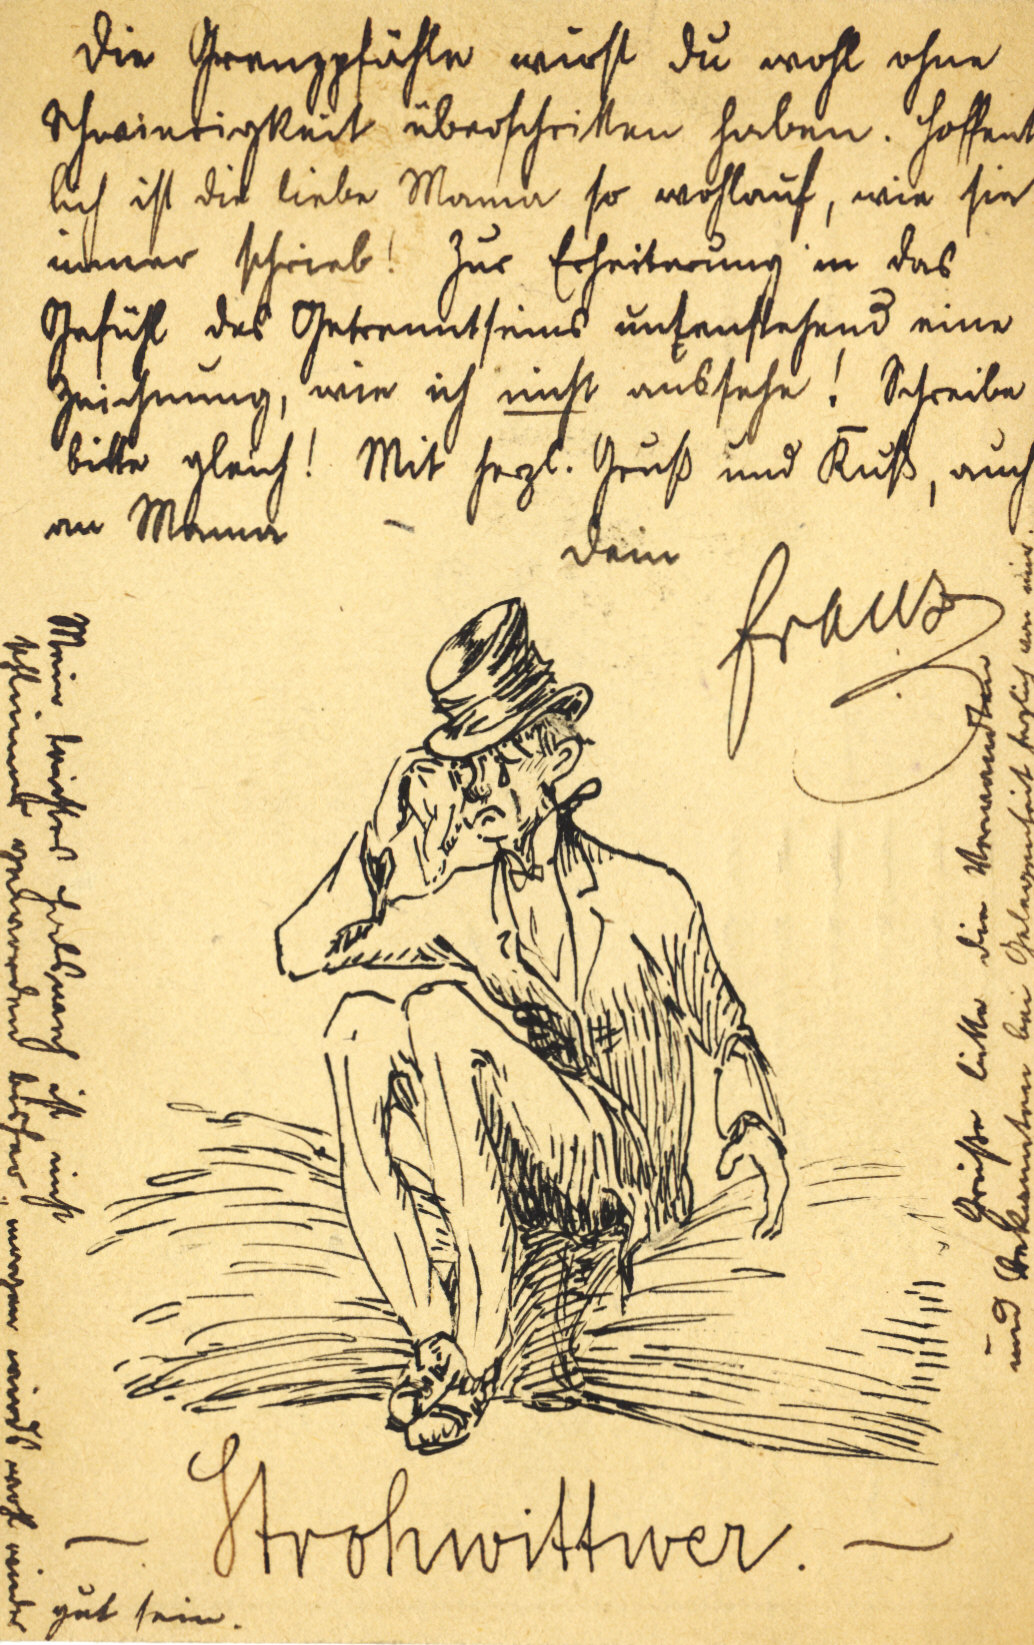 Die Grenzpfähle wirst du wohl ohne
Schwierigkeit überschritten haben. Hoffent
lich ist die liebe Mama so wohlauf, wie sie
immer schrieb! Zur Erheiterung in das
Gefühl des Getrenntseins untenstehend eine
Zeichnung, wie ich nicht aussehe! Schreibe
bitte gleich! Mit herzl. Gruß und Kuß, auch
an Mama –
Dein
Franz
Mein leichtes Halsweh ist nicht
schlimmer geworden bisher, morgen wirds wohl wieder
gut sein.
Grüße bitte die Verwandten
und Bekannten bei Gelegenheit herzlich von mir.
– Strohwittwer. –